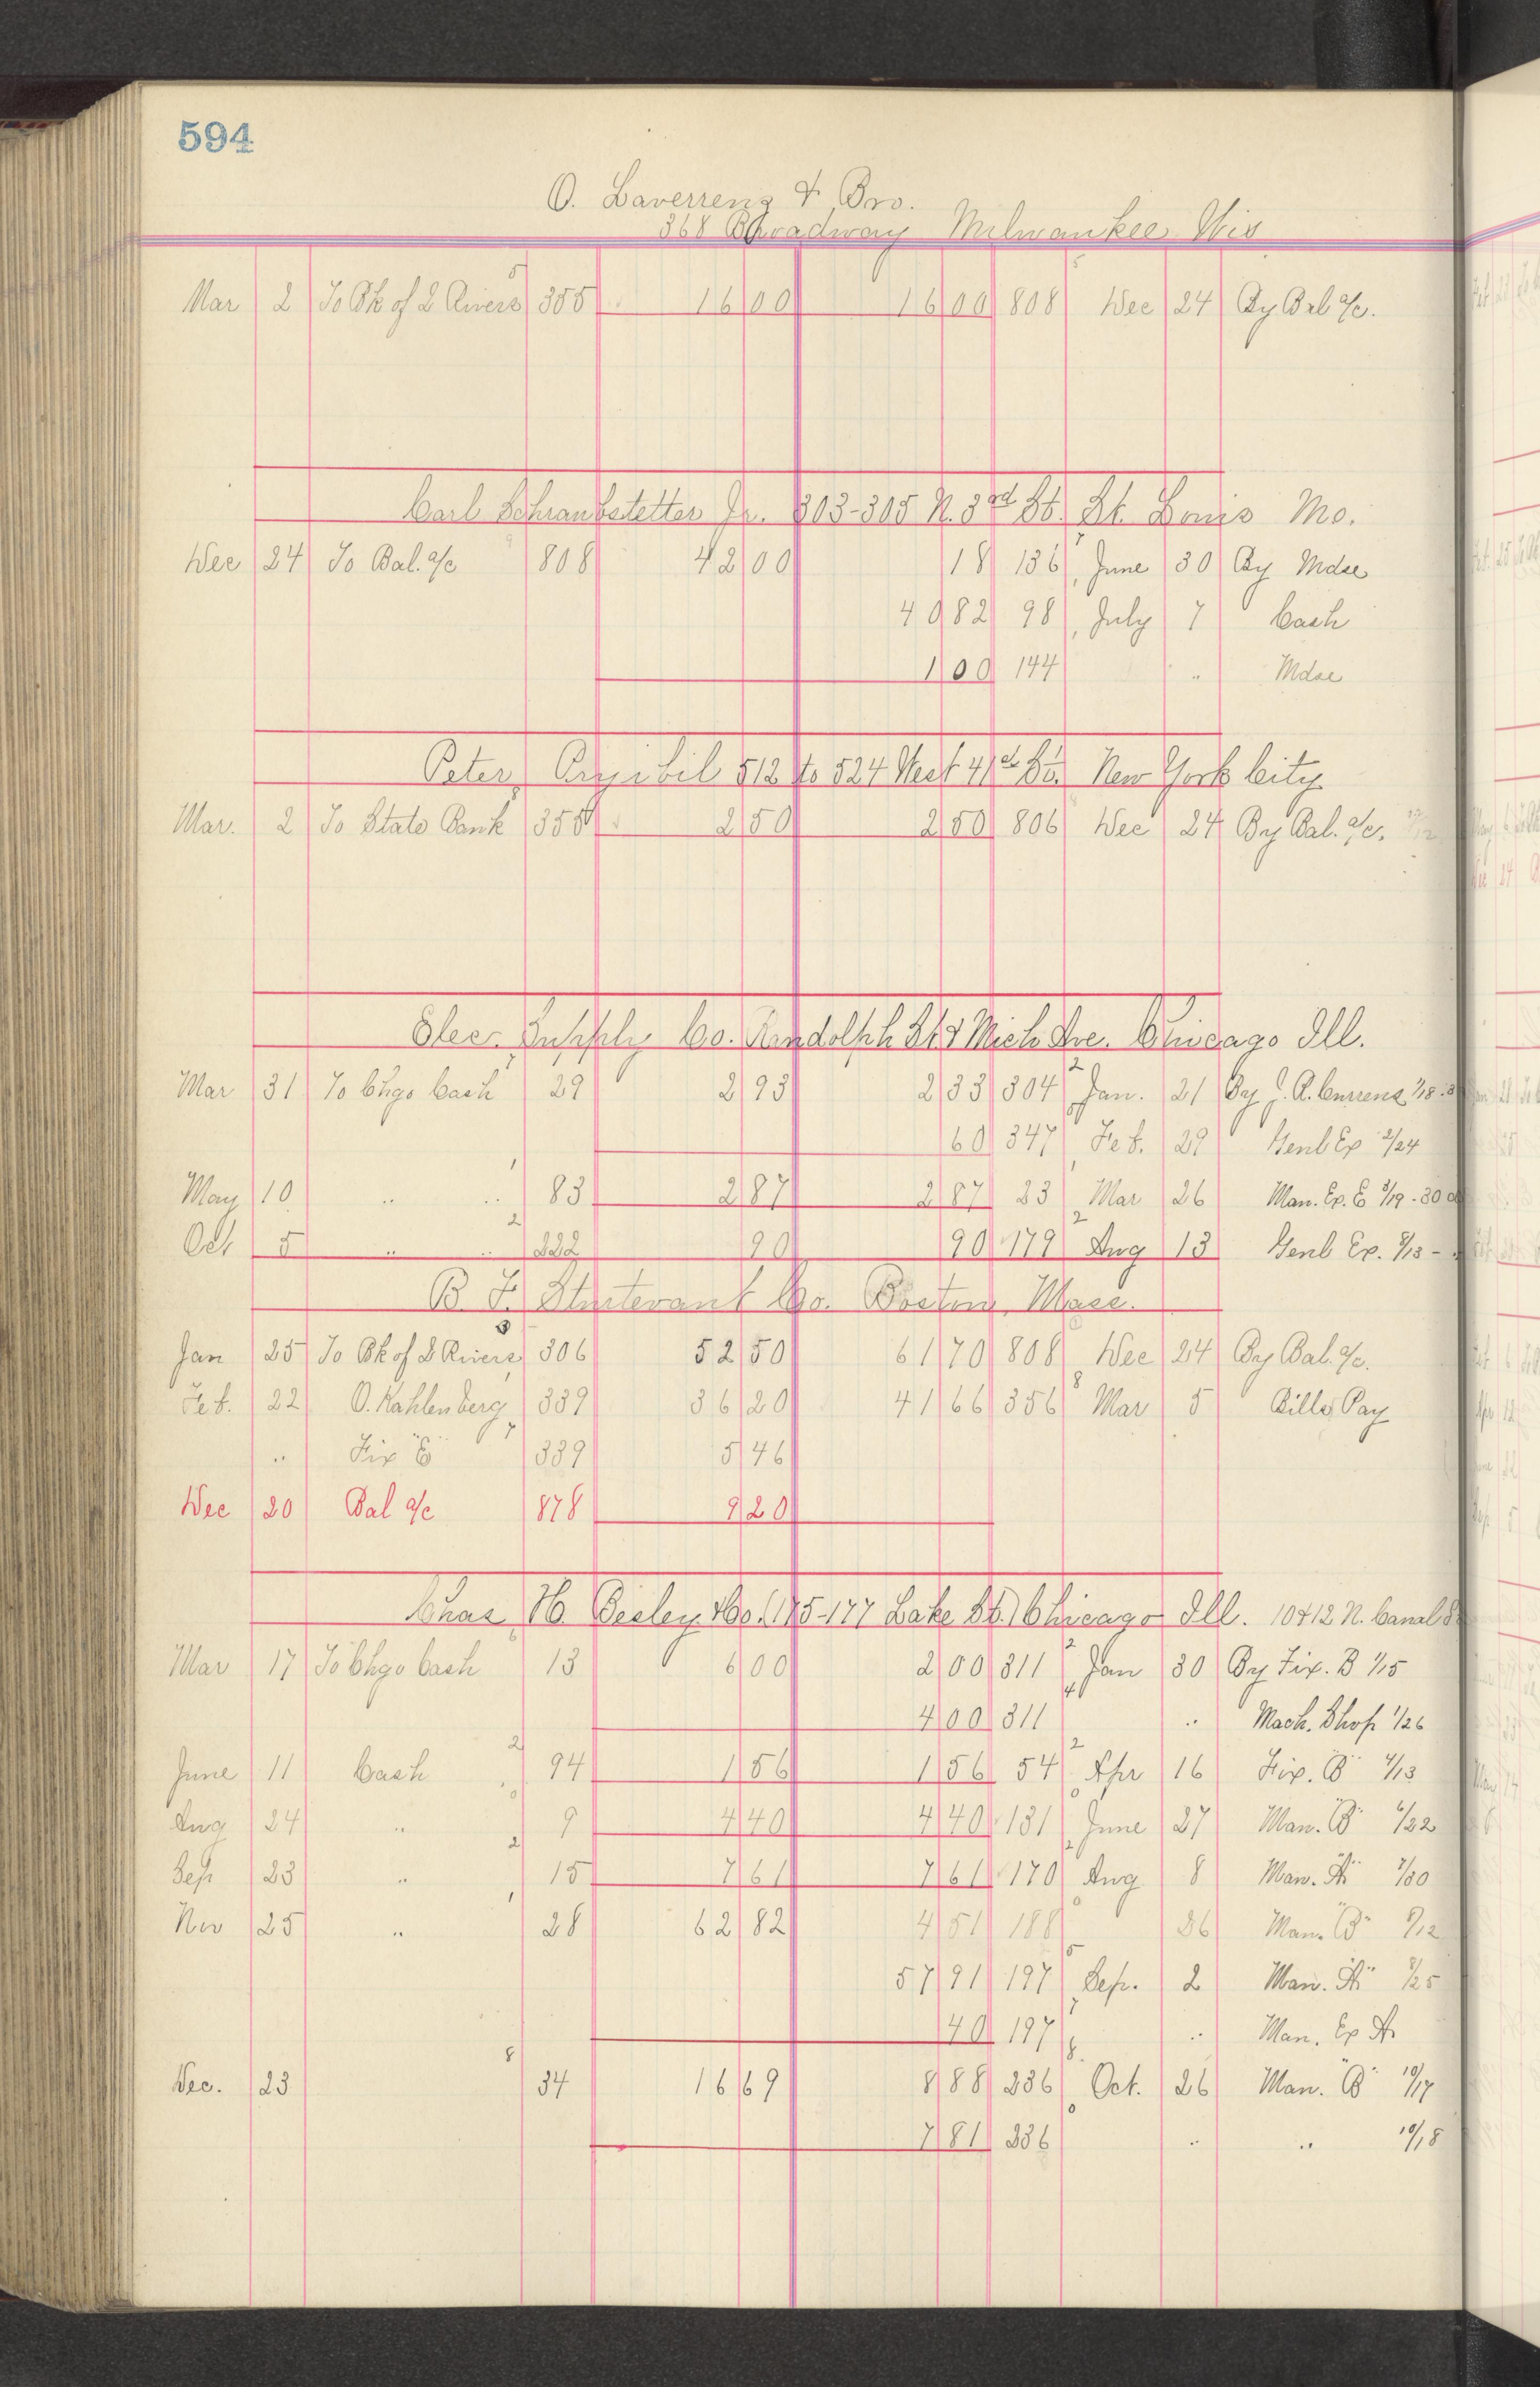 594
O. Laverrenz & Bro.
368 Broadway Milwaukee Wis
Mar 2 To Bk of 2 Rivers 5 355 16 00 16 00 808 Dec 24 By Bal a/c.
Carl Schraubstetter Jr. 303-305 N. 3rd St. St. Louis Mo.
Dec 24 To Bal. a/c 808 42 00 18 136 June 30 By Mdse
40 82 98 July 7 Cash
1 00 144 " Mdse
Peter 512 to 524 West 41st St. New York City
Mar. 2 To State Bank 355 2 50 2 50 806 Dec 24 By Bal. a/c.
Elec. Supply Co. Randolph St & Mich Ave. Chicago Ill.
Mar 31 To Chgo Cash 29 2 93 2 33 304 2 Jan. 21 By J. A.
60 347 Feb. 29 Genl Ex 2/24
May 10 " " 1 83 2 87 2 87 23 Mar 26 Man. Ex. 3/19 - 30
Oct 5 " " 2 222 90 90 179 2 Aug 13 Genl Ex. 8/13 -
B. F. Sturtevant Co. Boston, Mass.
Jan 25 To Bk of 2 Rivers 306 52 50 61 70 808 Dec 24 By Bal. a/c.
Feb. 22 O. Kahlenberg 339 36 20 41 66 356 8 Mar 5 Bills Pay
" Fix "E" 339 5 46
Dec 20 Bal a/c 878 9 20
Chas. H. Besley & Co. 175-177 Lake St. Chicago Ill. 10 & 12 N. Canal
Mar 17 To Chgo Cash 13 6 00 2 00 311 2 Jan 30 By Fix. B 1/15
4 00 311 " Mach. Shop 1/26
June 11 Cash 2 94 1 56 1 56 54 2 Apr 16 Fix. "B" 4/13
Aug 24 " 9 4 40 4 40 131 June 27 Man. "B" 6/22
Sep 23 " 2 15 7 61 7 61 170 Aug 8 Man. "A" 7/30
Nov 25 " 1 28 62 82 4 51 188 26 Man. "B" 8/12
57 91 197 5 Sep. 2 Man. "A" 8/25
40 197 " Man. Ex A
Dec. 23 8 34 16 69 8 88 236 Oct. 26 Man. "B" 10/17
7 81 236 " " 10/18